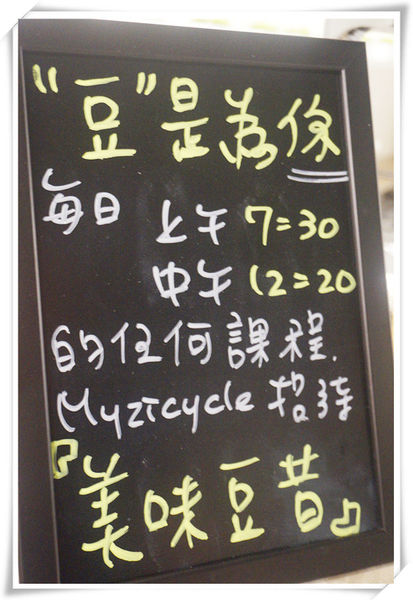 “豆”是為你
每日 上午 7=30
中午 12=20
的任何課程.
Myzicycle 招待
『美味豆昔』